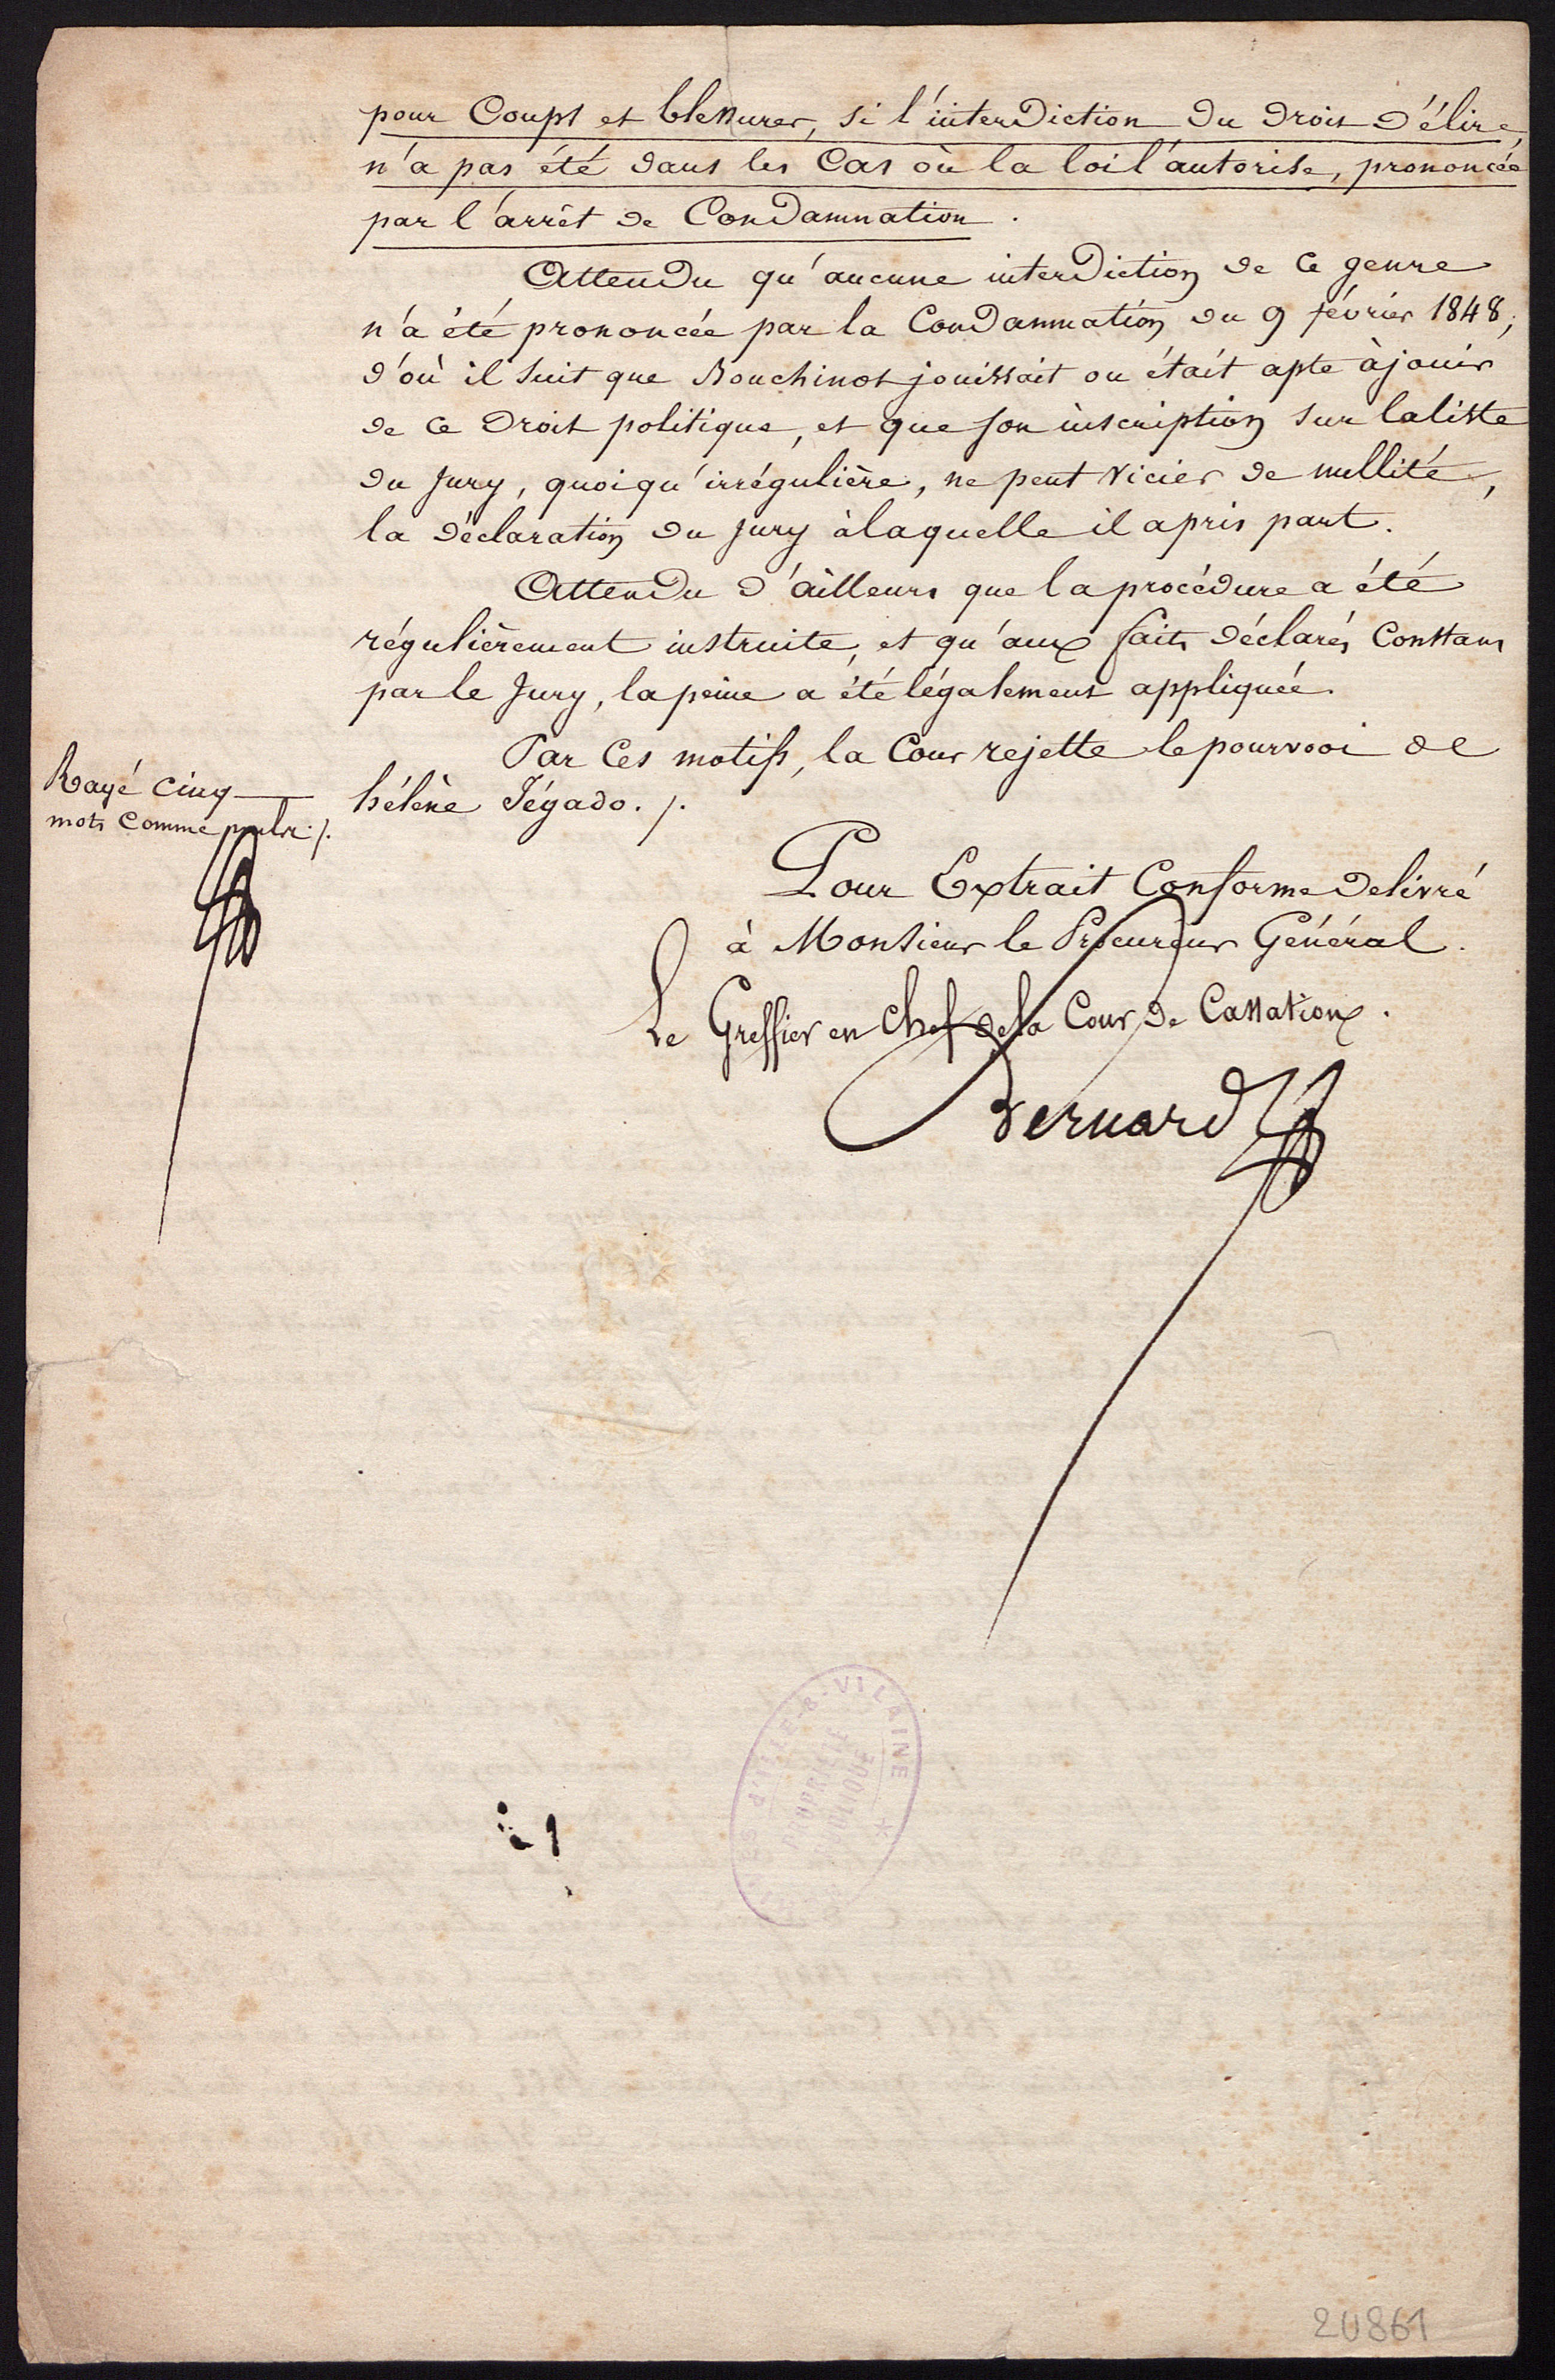 pour Coups et blessures, si l'interdiction du droit d'élire,
n'a pas été dans les Cas où la loi l'autorise, prononcée
par l'arrêt de Condamnation.
Attendu qu'aucune interdiction de ce genre
n'a été prononcée par la Condamnation du 9 février 1848;
d'où il suit que Bouchinot jouissait ou était apte à jouir
de ce droit politique, et que son inscription sur la liste
du Jury, quoiqu'irrégulière, ne peut vicier de nullité,
la déclaration du jury à laquelle il a pris part.
Attendu d'ailleurs que la procédure a été
régulièrement instruite, et qu'aux faits déclarés Constans
par le Jury, la peine a été légalement appliquée.
Par Ces motifs, la Cour rejette le pourvoi de
hélène Jégado. /.
Rayé cinq
mots Comme nuls. /.
Pour Extrait Conforme delivré
à Monsieur le Procureur Général.
Le Greffier en chef de la Cour de Cassation.
Bernard
D'ILLE-&-VILAINE
PROPRIÉTÉ
PUBLIQUE
20861